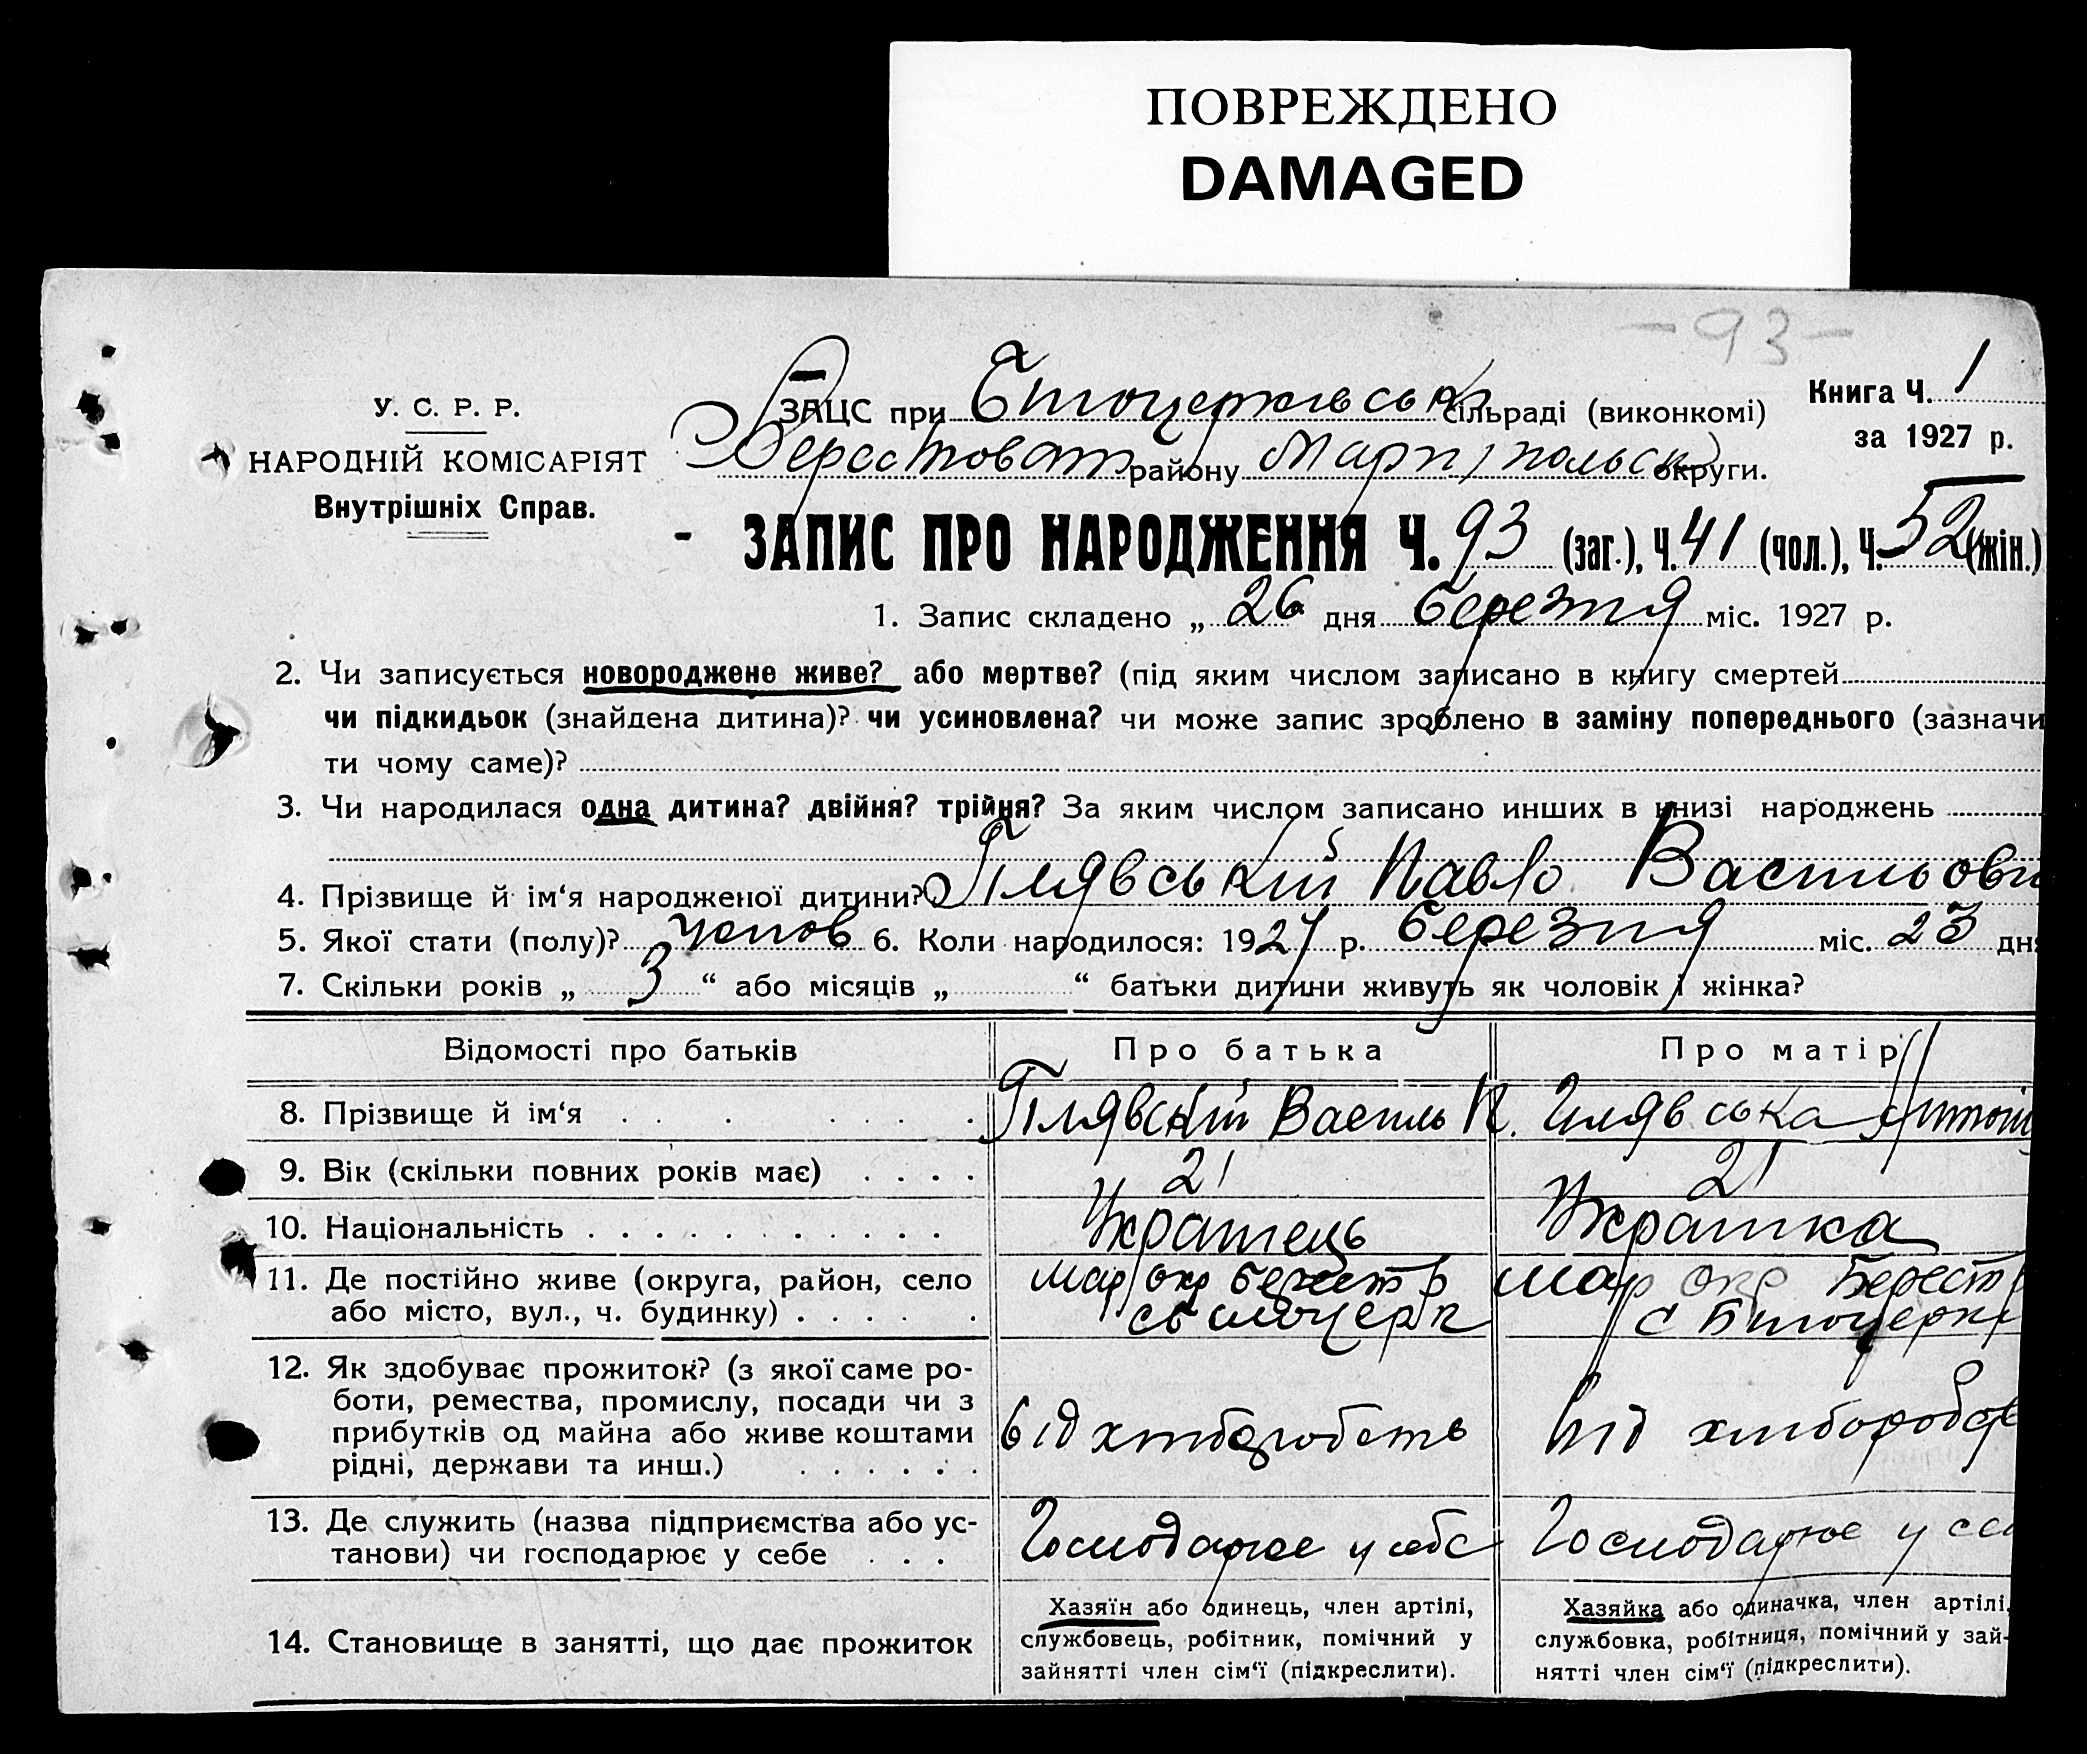 ПОВРЕЖДЕНО
DAMAGED
-93-
У. С. Р. Р.
НАРОДНІЙ КОМІСАРІЯТ
Внутрішніх Справ.
ЗАЦС при Білоцерківськ сільраді (виконкомі)
Берестоват району Маріупольськ округи.
Книга Ч. 1
за 1927 р.
- ЗАПИС ПРО НАРОДЖЕННЯ Ч. 93 (заг.), Ч. 41 (чол.), Ч. 52 (жін.)
1. Запис складено „ 26 дня березня міс. 1927 р.
2. Чи записується новороджене живе? або мертве? (під яким числом записано в книгу смертей
чи підкидьок (знайдена дитина)? чи усиновлена? чи може запис зроблено в заміну попереднього (зазначи
ти чому саме)?
3. Чи народилася одна дитина? двійня? трійня? За яким числом записано инших в книзі народжень
4. Прізвище й ім‘я народженої дитини? Гілявський Павло Васильови
5. Якої стати (полу)? чолов 6. Коли народилося: 1927 р. березня міс. 23 дня
7. Скільки років „ 3 “ або місяців „ “ батьки дитини живуть як чоловік і жінка?
Відомості про батьків Про батька Про матір
8. Прізвище й ім‘я . . . . . . Гілявский Василь П. Гилявська Антоні
9. Вік (скільки повних років має) . . . . 21 21
10. Національність . . . . . . . . . . . Украінець Украінка
11. Де постійно живе (округа, район, село Мар окр Берест р Мар окр Берест р
або місто, вул., ч. будинку) . . . . . с Білоцерк с Білоцеркі
12. Як здобуває прожиток? (з якої саме ро-
боти, ремества, промислу, посади чи з
прибутків од майна або живе коштами від хліборобств від хлібороб
рідні, держави та инш.) . . . . . .
13. Де служить (назва підприємства або ус- Господарює у себе Господарює у се
танови) чи господарює у себе . . .
14. Становище в занятті, що дає прожиток
Хазяїн або одинець, член артілі,
службовець, робітник, помічний у
зайнятті член сім‘ї (підкреслити).
Хазяйка або одиначка, член артілі,
службовка, робітниця, помічний у зай-
нятті член сім‘ї (підкреслити).